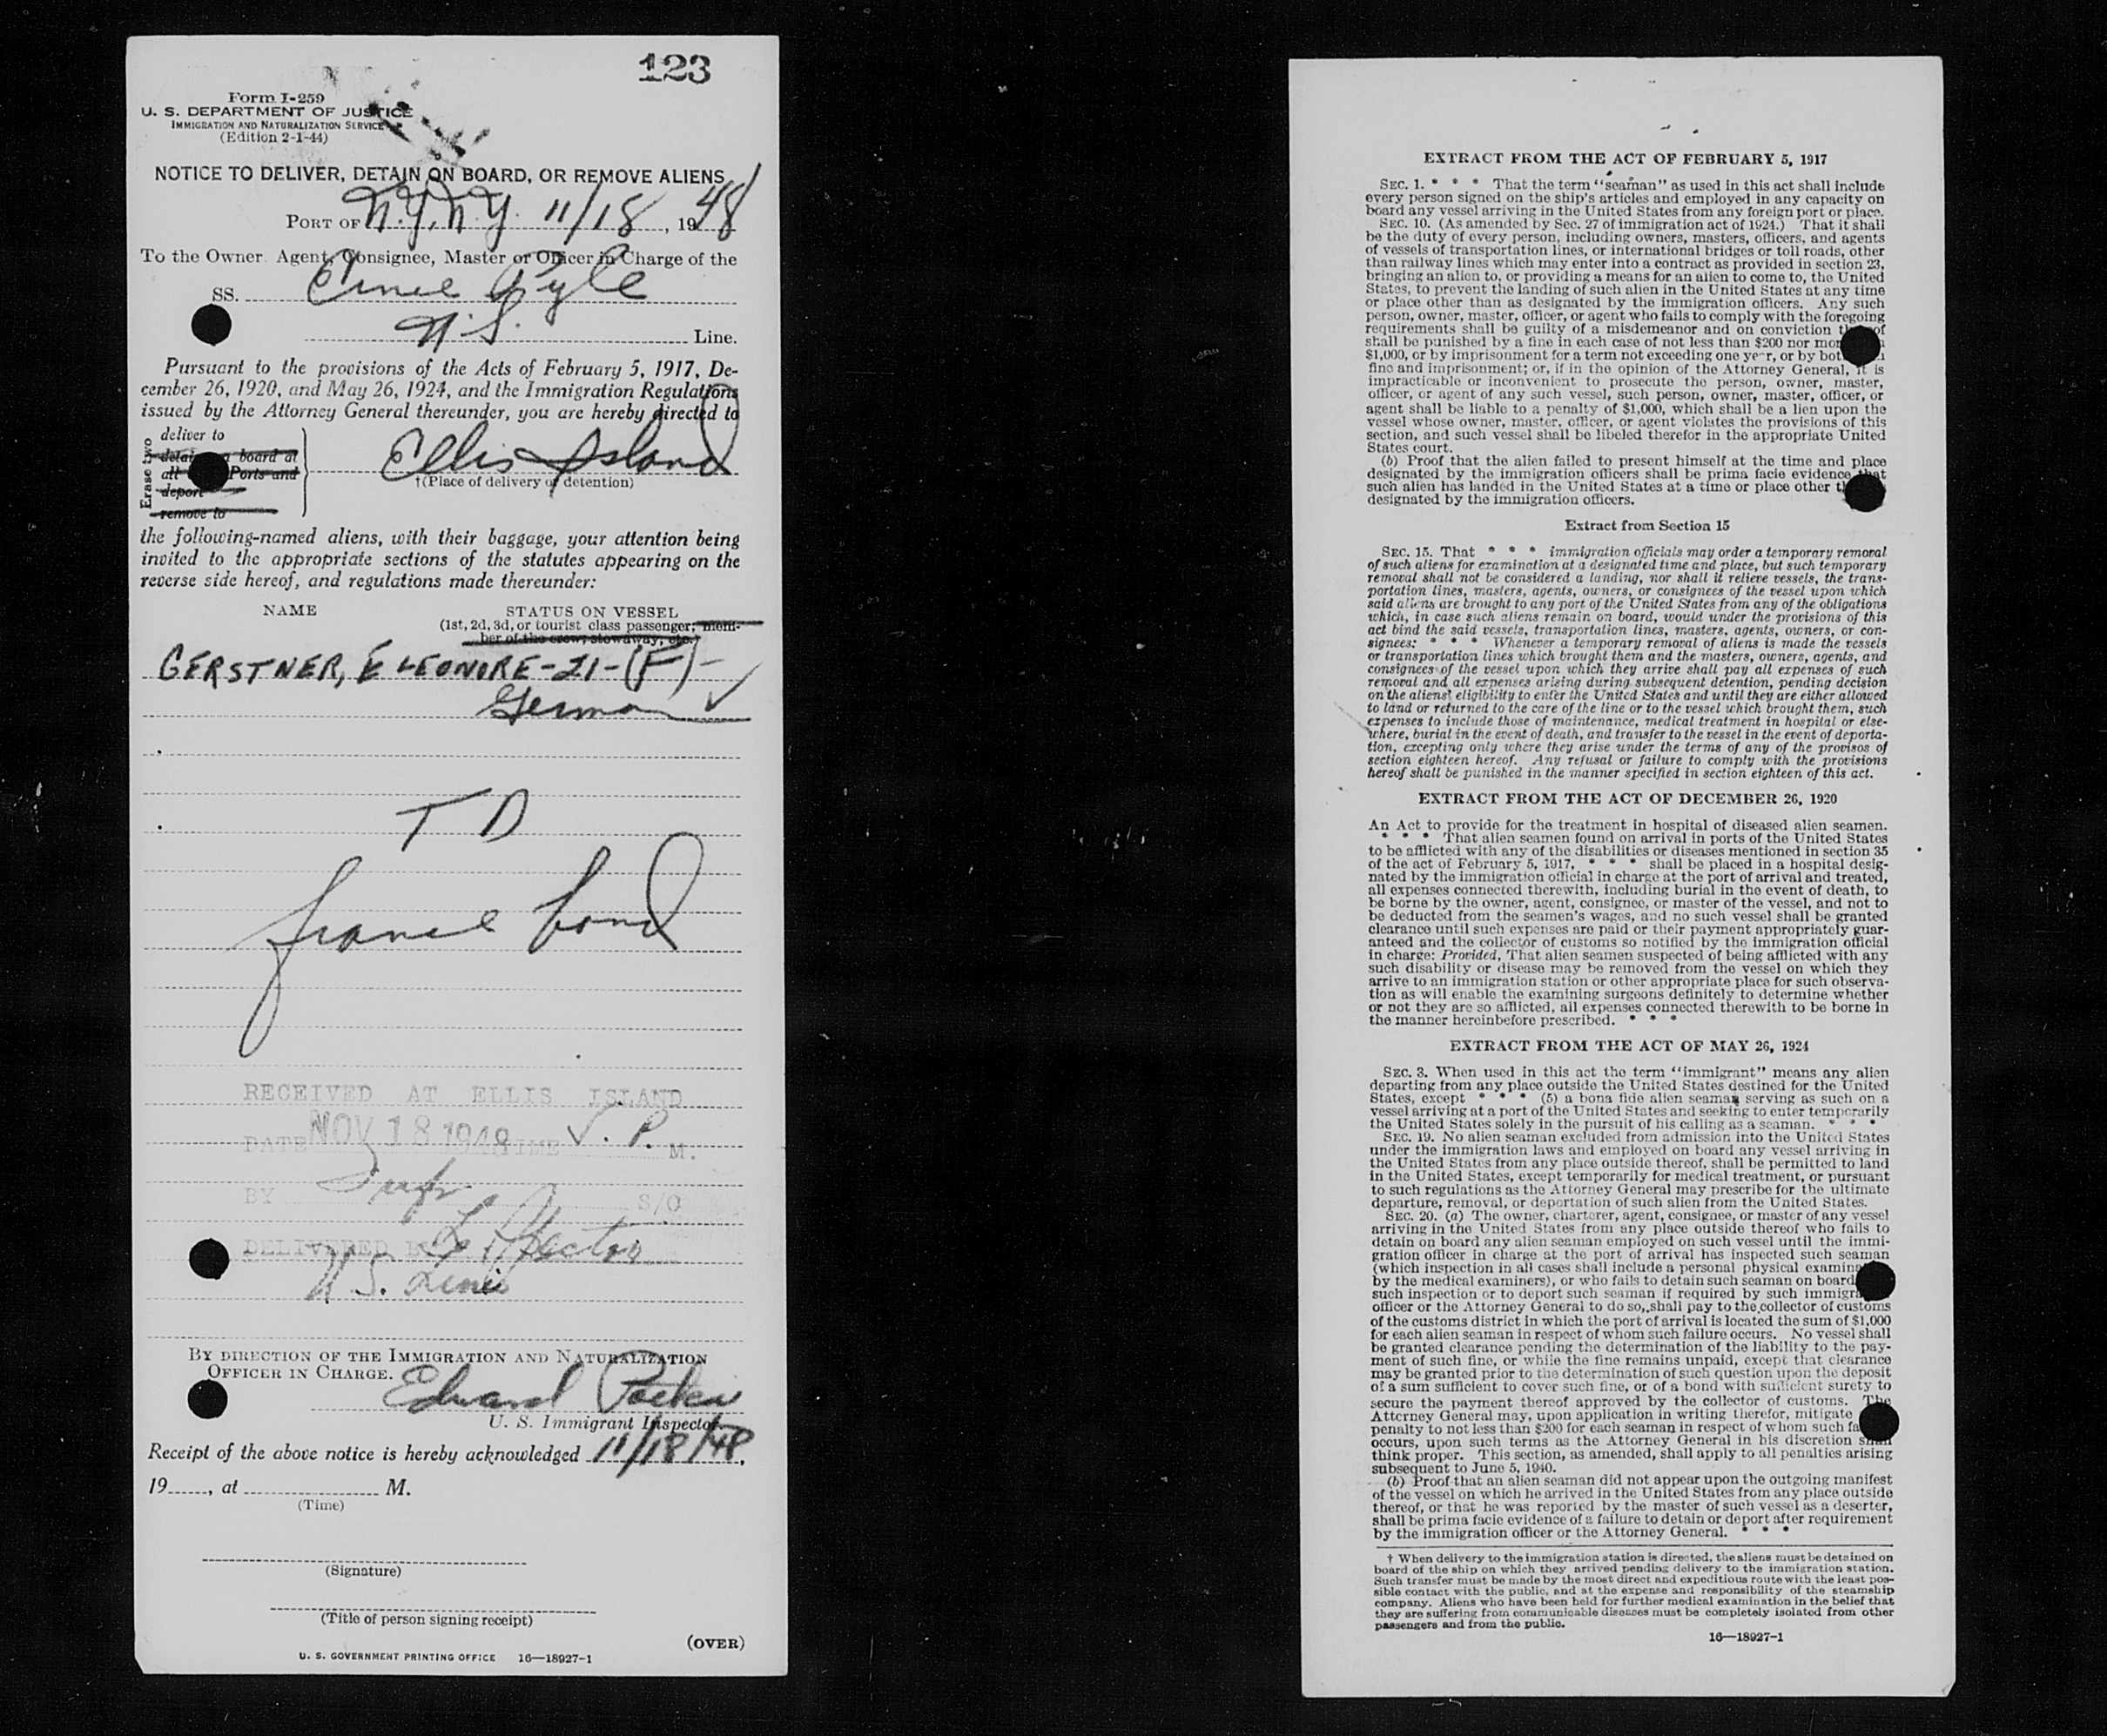 123
Form I-259
U. S. DEPARTMENT OF JUSTICE
IMMIGRATION AND NATURALIZATION SERVICE
(Edition 2-1-44)
NOTICE TO DELIVER, DETAIN ON BOARD, OR REMOVE ALIENS
PORT OF N.Y. N.Y. 11/18, 1948
To the Owner Agent, Consignee, Master or Officer in Charge of the
SS. Ernie Pyle
U.S. Line.
Pursuant to the provisions of the Acts of February 5, 1917, De-
cember 26, 1920, and May 26, 1924, and the Immigration Regulations
issued by the Attorney General thereunder, you are hereby directed to
Erase two
deliver to
detain on board at
all Ports and
deport
remove to
Ellis Island
†(Place of delivery or detention)
the following-named aliens, with their baggage, your attention being
invited to the appropriate sections of the statutes appearing on the
reverse side hereof, and regulations made thereunder:
NAME STATUS ON VESSEL
(1st, 2d, 3d, or tourist class passenger; mem-
ber of the crew; stowaway, etc.)
GERSTNER, ELEONORE-21-(F)-
German ✓
T D
RECEIVED AT ELLIS ISLAND
DATE NOV 18 1948 TIME P. M.
BY S/O
DELIVERED
U.S. Lines
BY DIRECTION OF THE IMMIGRATION AND NATURALIZATION
OFFICER IN CHARGE.
Edward
U. S. Immigrant Inspector.
Receipt of the above notice is hereby acknowledged 11/18/48,
19, at M.
(Time)
(Signature)
(Title of person signing receipt)
(OVER)
U. S. GOVERNMENT PRINTING OFFICE 16—18927-1
EXTRACT FROM THE ACT OF FEBRUARY 5, 1917
SEC. 1. * * * That the term "seaman" as used in this act shall include
every person signed on the ship's articles and employed in any capacity on
board any vessel arriving in the United States from any foreign port or place.
SEC. 10. (As amended by Sec. 27 of immigration act of 1924.) That it shall
be the duty of every person, including owners, masters, officers, and agents
of vessels of transportation lines, or international bridges or toll roads, other
than railway lines which may enter into a contract as provided in section 23,
bringing an alien to, or providing a means for an alien to come to, the United
States, to prevent the landing of such alien in the United States at any time
or place other than as designated by the immigration officers. Any such
person, owner, master, officer, or agent who fails to comply with the foregoing
requirements shall be guilty of a misdemeanor and on conviction thereof
shall be punished by a fine in each case of not less than $200 nor more
$1,000, or by imprisonment for a term not exceeding one year, or by both
fine and imprisonment; or, if in the opinion of the Attorney General, it is
impracticable or inconvenient to prosecute the person, owner, master,
officer, or agent of any such vessel, such person, owner, master, officer, or
agent shall be liable to a penalty of $1,000, which shall be a lien upon the
vessel whose owner, master, officer, or agent violates the provisions of this
section, and such vessel shall be libeled therefor in the appropriate United
States court.
(b) Proof that the alien failed to present himself at the time and place
designated by the immigration officers shall be prima facie evidence that
such alien has landed in the United States at a time or place other
designated by the immigration officers.
Extract from Section 15
SEC. 15. That * * * immigration officials may order a temporary removal
of such aliens for examination at a designated time and place, but such temporary
removal shall not be considered a landing, nor shall it relieve vessels, the trans-
portation lines, masters, agents, owners, or consignees of the vessel upon which
said aliens are brought to any port of the United States from any of the obligations
which, in case such aliens remain on board, would under the provisions of this
act bind the said vessels, transportation lines, masters, agents, owners, or con-
signees: * * * Whenever a temporary removal of aliens is made the vessels
or transportation lines which brought them and the masters, owners, agents, and
consignees of the vessel upon which they arrive shall pay all expenses of such
removal and all expenses arising during subsequent detention, pending decision
on the aliens' eligibility to enter the United States and until they are either allowed
to land or returned to the care of the line or to the vessel which brought them, such
expenses to include those of maintenance, medical treatment in hospital or else-
where, burial in the event of death, and transfer to the vessel in the event of deporta-
tion, excepting only where they arise under the terms of any of the provisos of
section eighteen hereof. Any refusal or failure to comply with the provisions
hereof shall be punished in the manner specified in section eighteen of this act.
EXTRACT FROM THE ACT OF DECEMBER 26, 1920
An Act to provide for the treatment in hospital of diseased alien seamen.
* * * That alien seamen found on arrival in ports of the United States
to be afflicted with any of the disabilities or diseases mentioned in section 35
of the act of February 5, 1917, * * * shall be placed in a hospital desig-
nated by the immigration official in charge at the port of arrival and treated,
all expenses connected therewith, including burial in the event of death, to
be borne by the owner, agent, consignee, or master of the vessel, and not to
be deducted from the seamen's wages, and no such vessel shall be granted
clearance until such expenses are paid or their payment appropriately guar-
anteed and the collector of customs so notified by the immigration official
in charge: Provided, That alien seamen suspected of being afflicted with any
such disability or disease may be removed from the vessel on which they
arrive to an immigration station or other appropriate place for such observa-
tion as will enable the examining surgeons definitely to determine whether
or not they are so afflicted, all expenses connected therewith to be borne in
the manner hereinbefore prescribed. * * *
EXTRACT FROM THE ACT OF MAY 26, 1924
SEC. 3. When used in this act the term "immigrant" means any alien
departing from any place outside the United States destined for the United
States, except * * * (5) a bona fide alien seaman serving as such on a
vessel arriving at a port of the United States and seeking to enter temporarily
the United States solely in the pursuit of his calling as a seaman. * * *
SEC. 19. No alien seaman excluded from admission into the United States
under the immigration laws and employed on board any vessel arriving in
the United States from any place outside thereof, shall be permitted to land
in the United States, except temporarily for medical treatment, or pursuant
to such regulations as the Attorney General may prescribe for the ultimate
departure, removal, or deportation of such alien from the United States.
SEC. 20. (a) The owner, charterer, agent, consignee, or master of any vessel
arriving in the United States from any place outside thereof who fails to
detain on board any alien seaman employed on such vessel until the immi-
gration officer in charge at the port of arrival has inspected such seaman
(which inspection in all cases shall include a personal physical examina
by the medical examiners), or who fails to detain such seaman on board
such inspection or to deport such seaman if required by such immigra
officer or the Attorney General to do so, shall pay to the collector of customs
of the customs district in which the port of arrival is located the sum of $1,000
for each alien seaman in respect of whom such failure occurs. No vessel shall
be granted clearance pending the determination of the liability to the pay-
ment of such fine, or while the fine remains unpaid, except that clearance
may be granted prior to the determination of such question upon the deposit
of a sum sufficient to cover such fine, or of a bond with sufficient surety to
secure the payment thereof approved by the collector of customs. The
Attorney General may, upon application in writing therefor, mitigate
penalty to not less than $200 for each seaman in respect of whom such fa
occurs, upon such terms as the Attorney General in his discretion shall
think proper. This section, as amended, shall apply to all penalties arising
subsequent to June 5, 1940.
(b) Proof that an alien seaman did not appear upon the outgoing manifest
of the vessel on which he arrived in the United States from any place outside
thereof, or that he was reported by the master of such vessel as a deserter,
shall be prima facie evidence of a failure to detain or deport after requirement
by the immigration officer or the Attorney General. * * *
† When delivery to the immigration station is directed, the aliens must be detained on
board of the ship on which they arrived pending delivery to the immigration station.
Such transfer must be made by the most direct and expeditious route with the least pos-
sible contact with the public, and at the expense and responsibility of the steamship
company. Aliens who have been held for further medical examination in the belief that
they are suffering from communicable diseases must be completely isolated from other
passengers and from the public.
16—18927-1